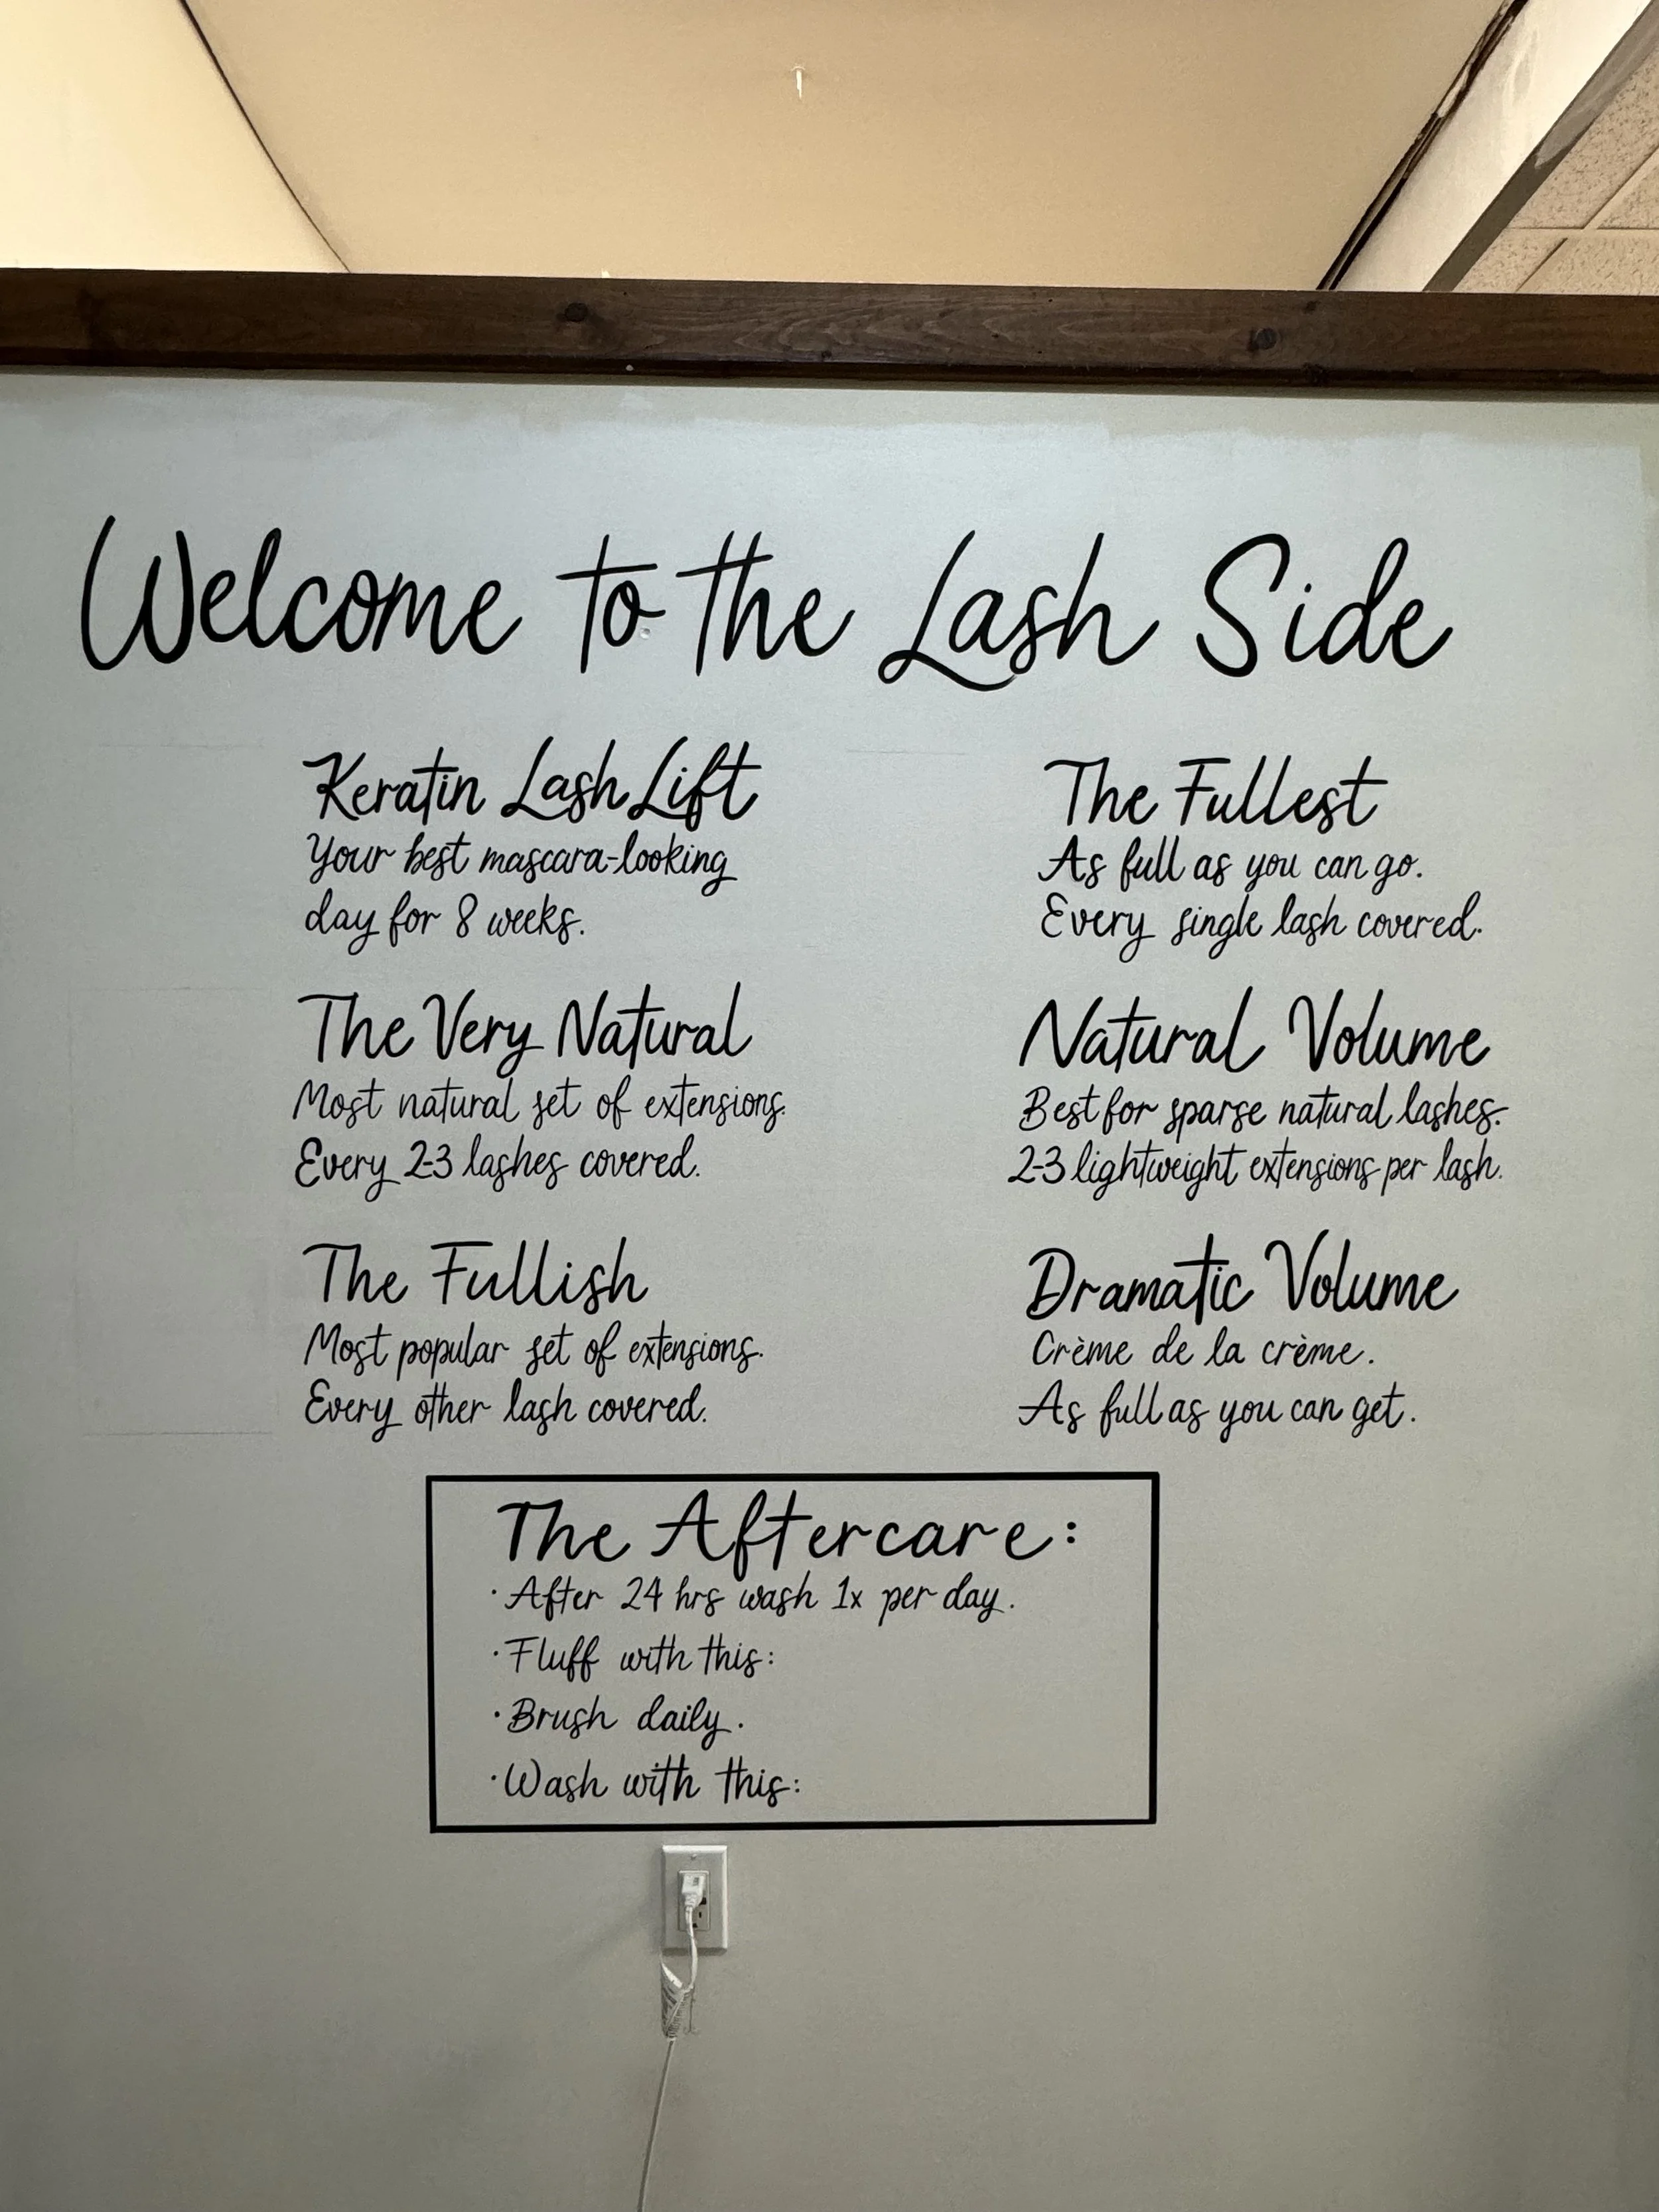 Welcome to the Lash Side
Keratin Lash Lift
Your best mascara-looking
day for 8 weeks.
The Very Natural
Most natural set of extensions.
Every 2-3 lashes covered.
The Fullish
Most popular set of extensions.
Every other lash covered.
The Fullest
As full as you can go.
Every single lash covered.
Natural Volume
Best for sparse natural lashes.
2-3 lightweight extensions per lash.
Dramatic Volume
Crème de la crème.
As full as you can get.
The Aftercare:
· After 24 hrs wash 1x per day.
· Fluff with this:
· Brush daily.
· Wash with this: